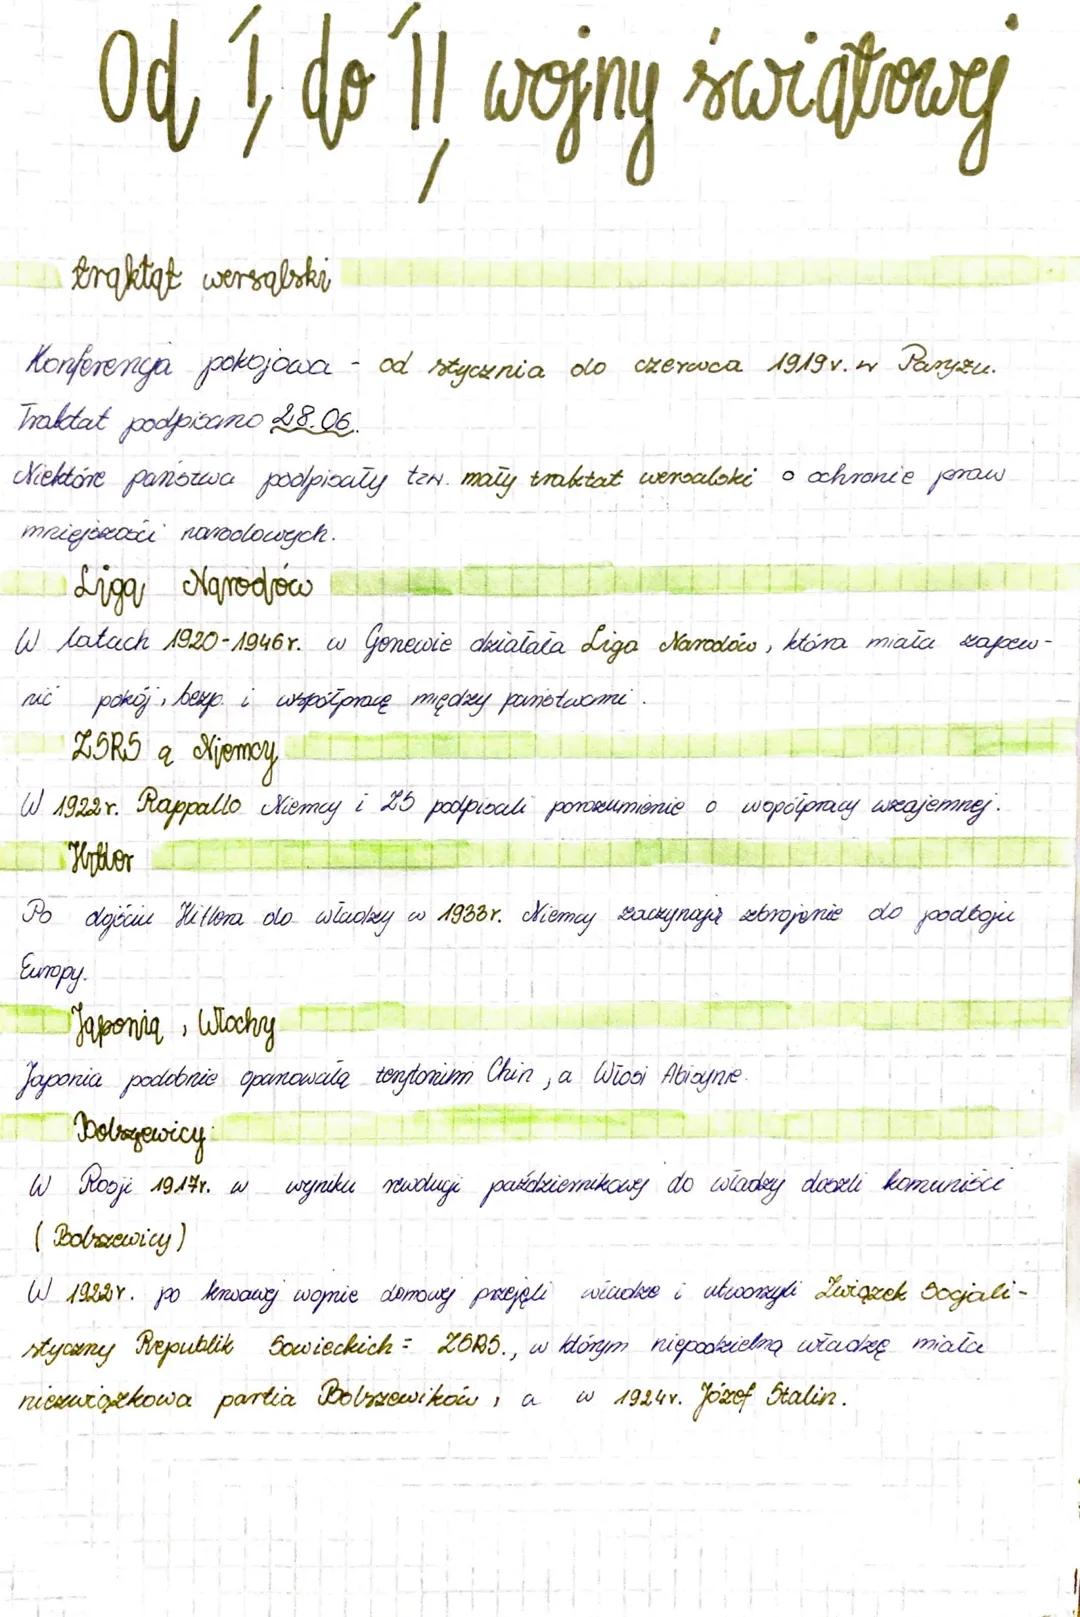 Od I do II wojny światowej
traktat wersalski
Konferencja pokojowa - od stycznia do czerwca 1919r. w Paryżu.
Traktat podpisano 28.06.
Niektóre państwa podpisały tzw. mały traktat wersalski o ochronie praw
mniejszości narodowych.
Liga Narodów
W latach 1920-1946r. w Genewie działała Liga Narodów, która miała zapew-
nić pokój, bezp. i współpracę między państwami.
ZSRS a Niemcy
W 1922r. Rappallo Niemcy i ZS podpisali porozumienie o współpracy wzajemnej.
Hitler
Po dojściu Hitlera do władzy w 1933r. Niemcy zaczynają zbrojenie do podboju
Europy.
Japonia, Włochy
Japonia podobnie opanowała terytorium Chin, a Włosi Abisynie.
Bolszewicy
W Rosji 1917r. w wyniku rewolucji październikowej do władzy doszli komuniści
(Bolszewicy)
W 1922r. po krwawej wojnie domowej przejęli władze i utworzyli Związek Socjali-
styczny Republik Sowieckich = ZSRS., w którym niepodzielną władzę miała
niezwiązkowa partia Bolszewików, a w 1924r. Józef Stalin.